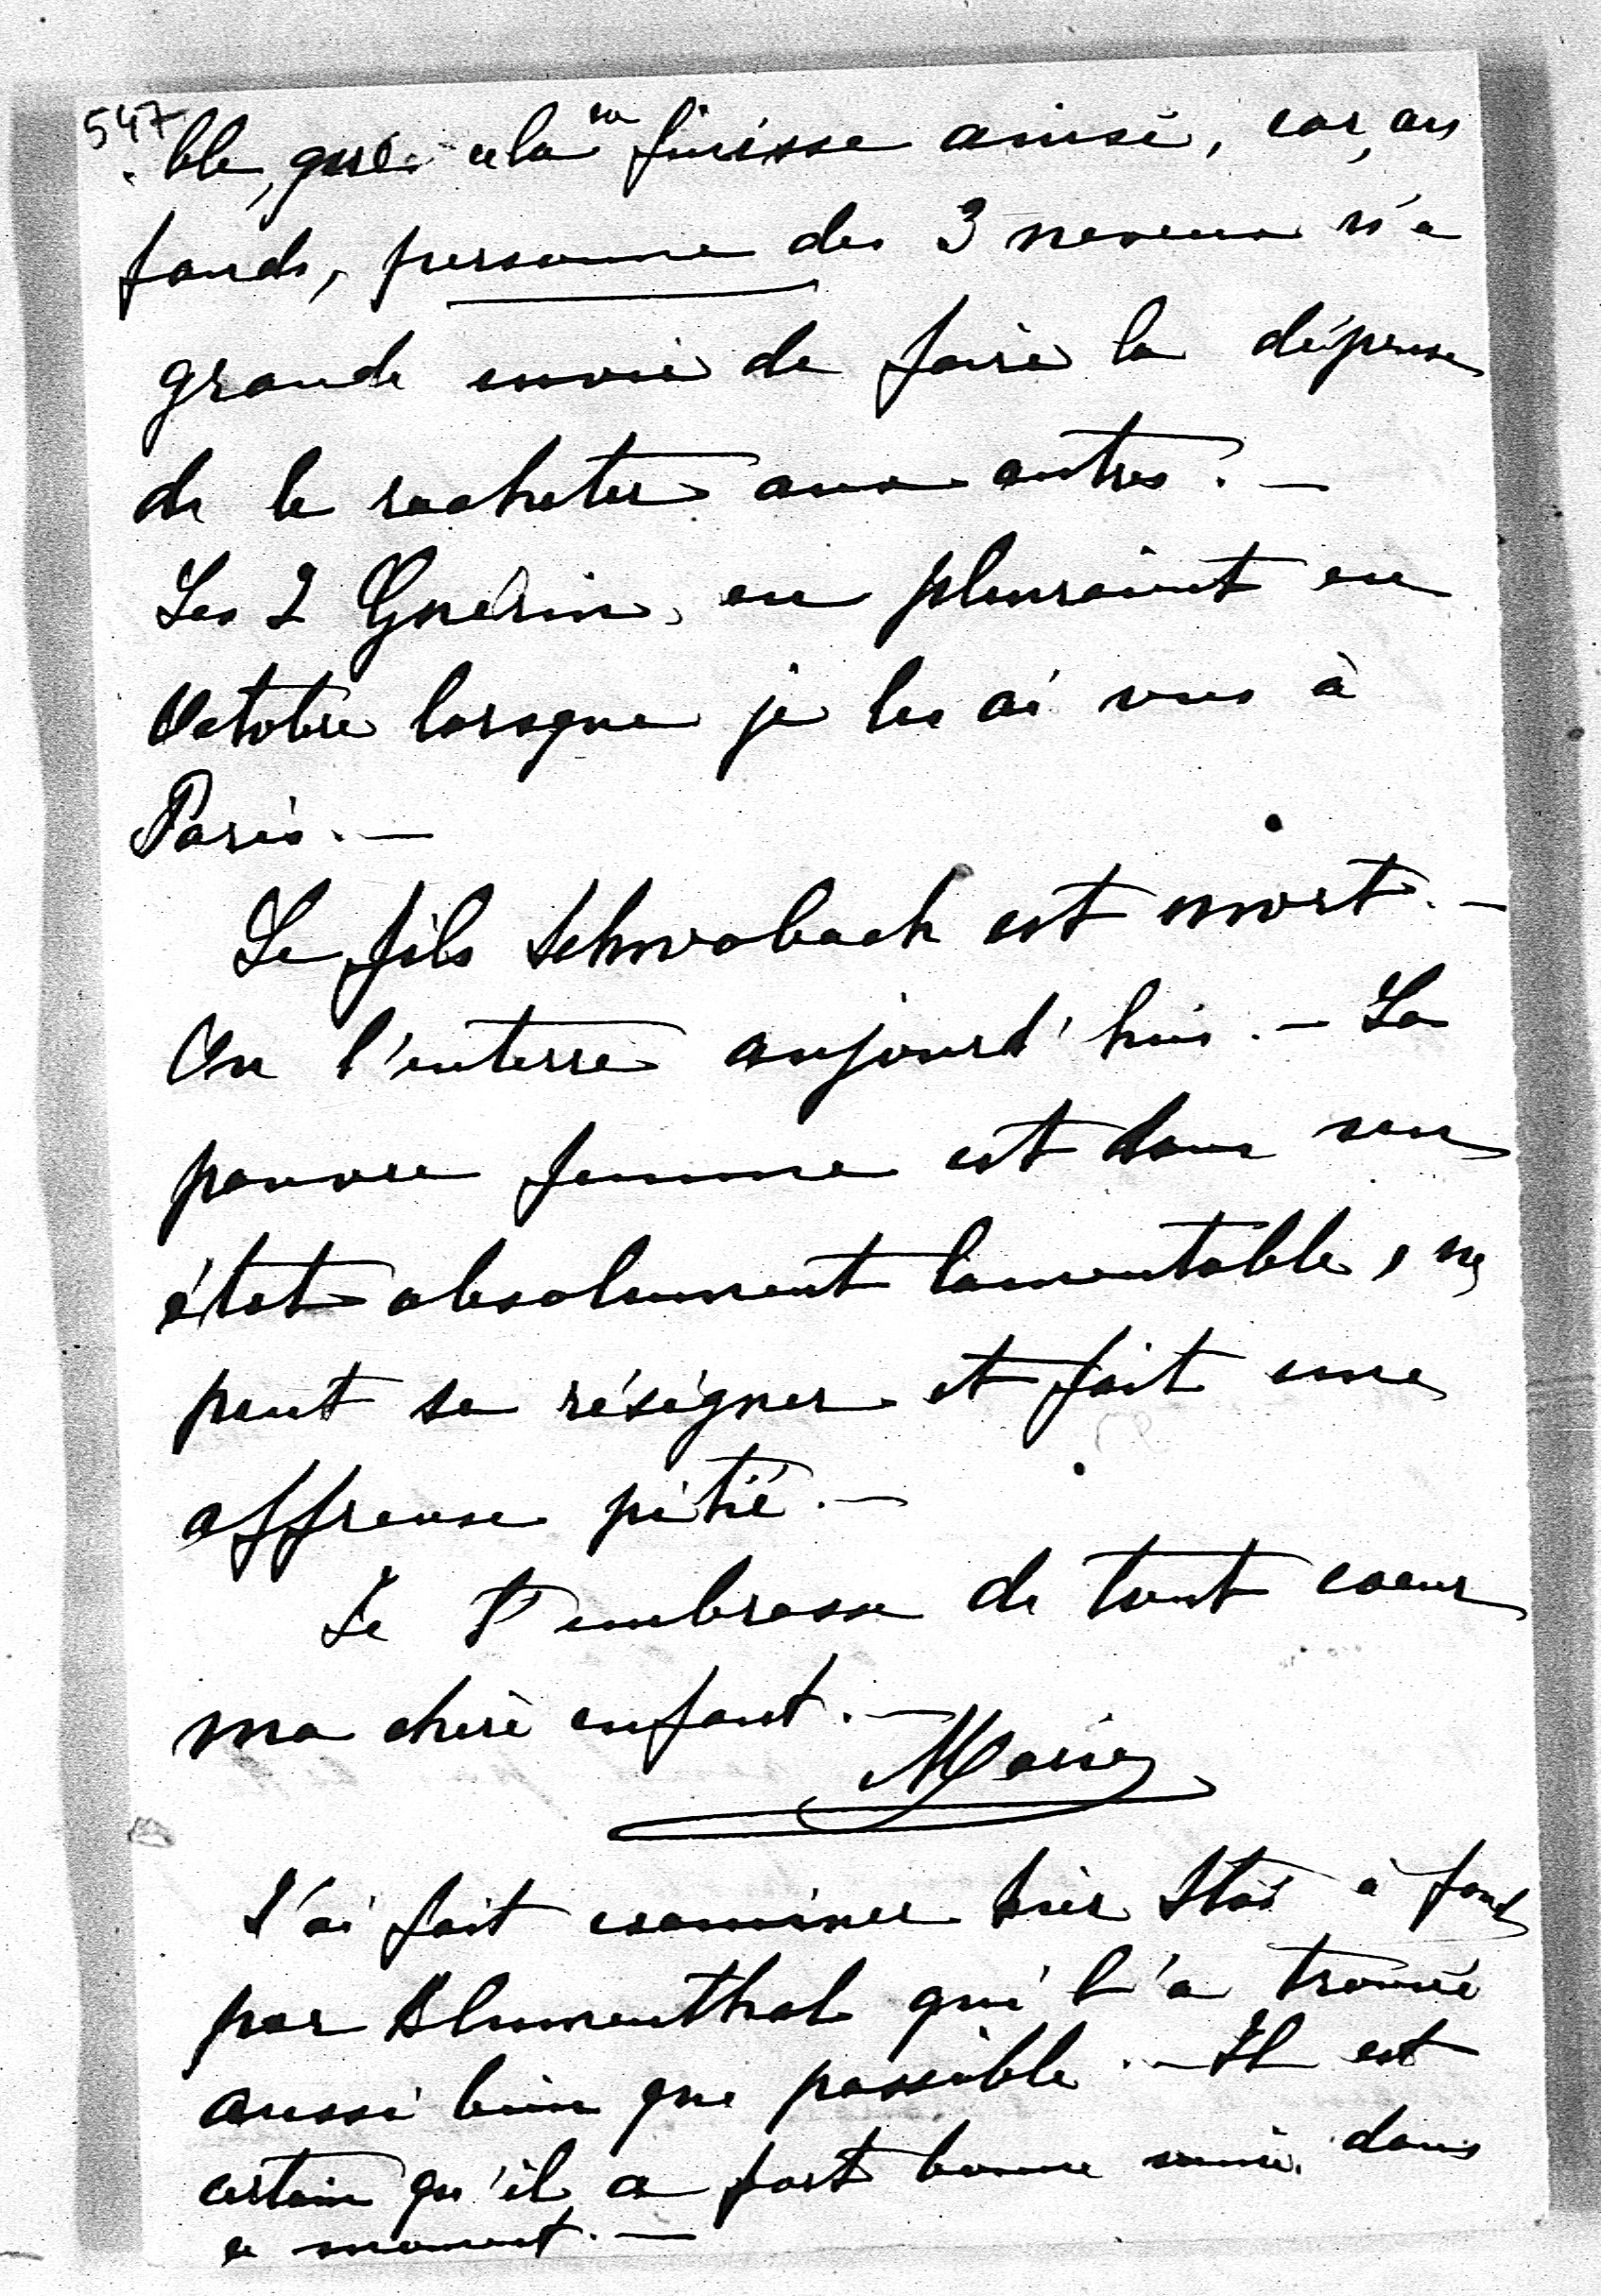 547
ble, que cela ne finisse ainsi, car, au
fonds, personne des 3 neveux n'a
grande envie de faire la dépense
de le racheter aux autres. —
Les 2 Guérin, en pleuraient en
Octobre lorsque je les ai vus à
Paris. —
Le fils Schwabach est mort. —
On l'enterre aujourd'hui. — La
pauvre femme est dans un
état absolument lamentable, ne
peut se résigner et fait une
affreuse pitié. —
Je t'embrasse de tout coeur
ma chère enfant. —
Marie
J'ai fait examiner hier Stas à fond
par Blumenthal qui l'a trouvé
aussi bien que possible. — Il est
certain qu'il a fort bonne mine dans
ce moment. —